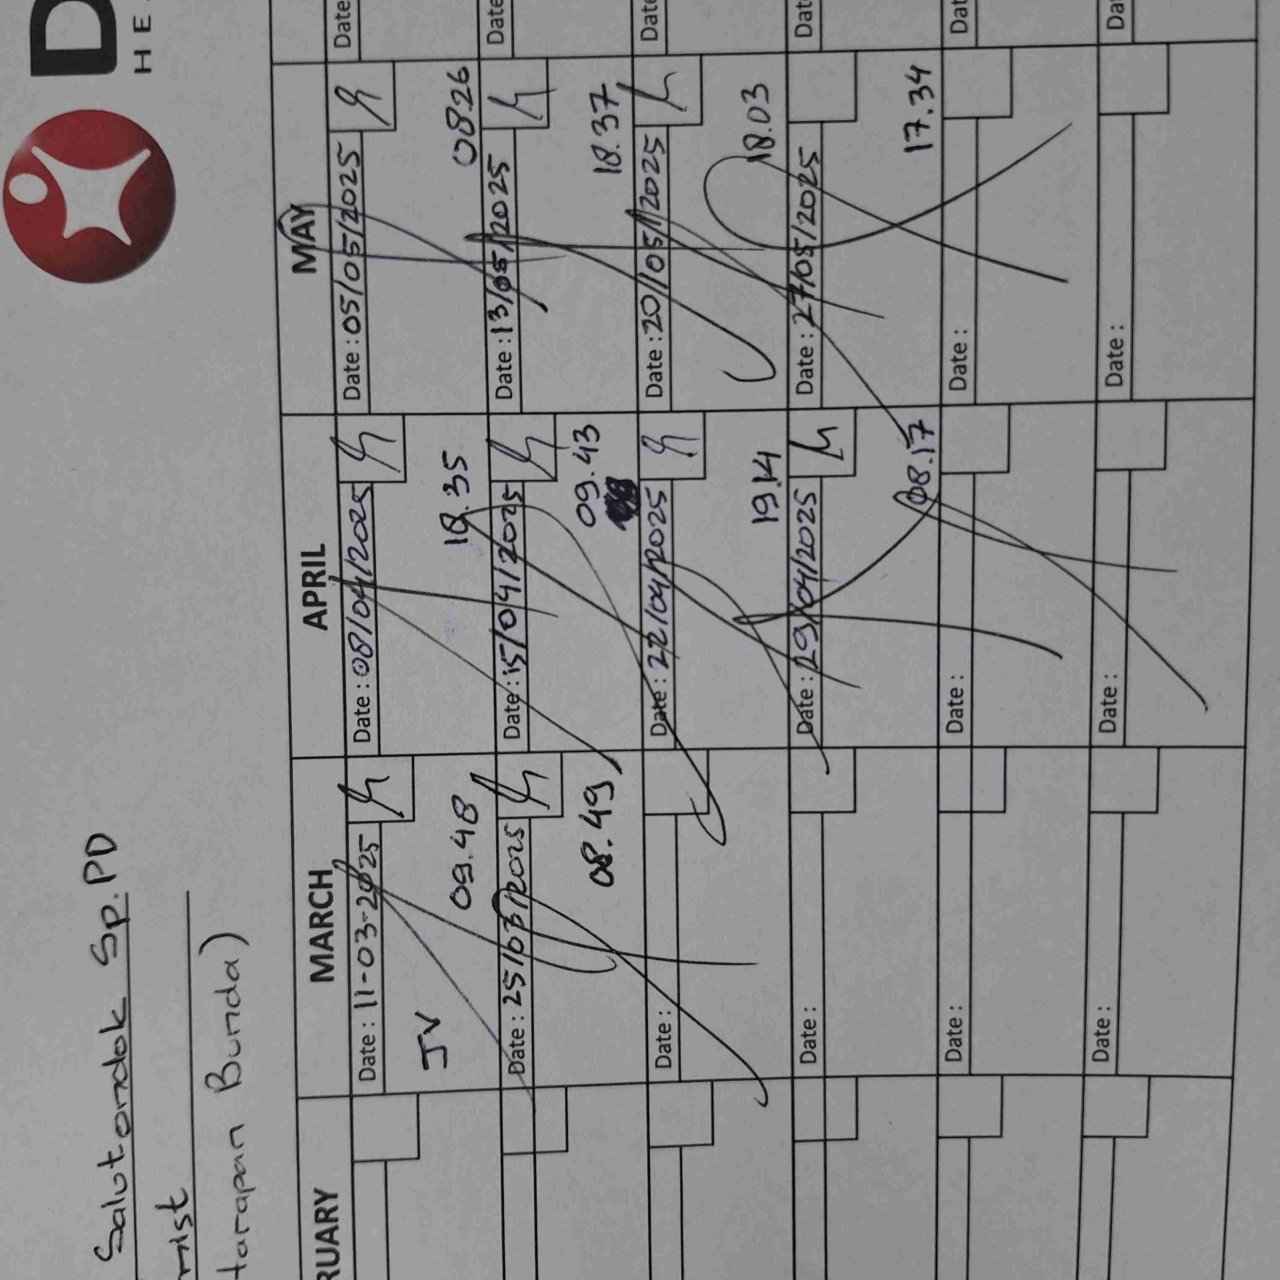 D
Salutondok Sp.PD
HE
mist
tarapan Bunda)
RUARY MARCH APRIL MAY
Date : 11-03-2025 Date : 08/04/2025 Date : 05/05/2025 Date
JV 09.48 18.35 0826
Date : 25/03/2025 Date : 15/04/2025 Date : 13/05/2025 Date
08.49 09.43 18.37
Date : Date : 22/04/2025 Date : 20/05/2025 Date
19.14 18.03
Date : Date : 29/04/2025 Date : 27/05/2025 Dat
08.17 17.34
Date : Date : Date : Dat
Date : Date : Date : Da